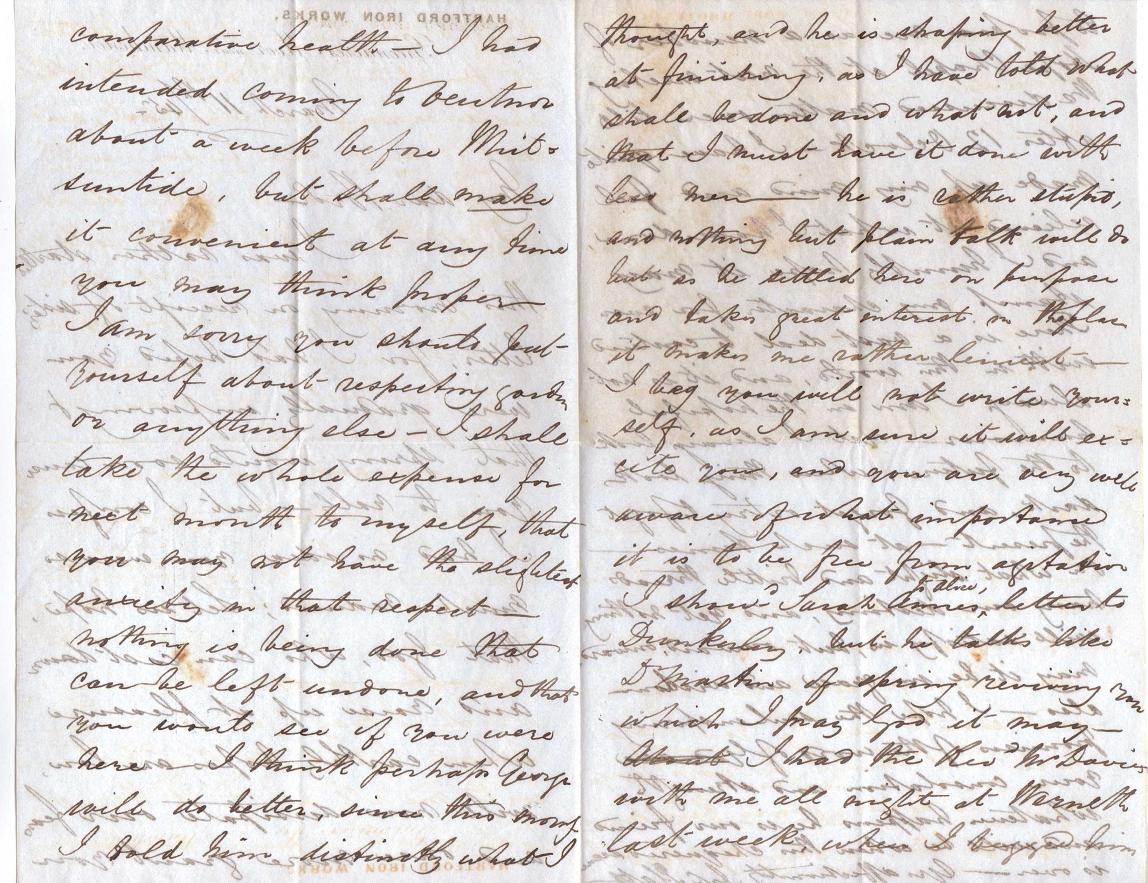 comparative health — I had
intended coming to Ventnor
about a week before Whit=
suntide, but shall make
it convenient at any time
you may think proper —
I am sorry you should put
yourself about respecting garden
or anything else — I shall
take the whole expense for
next month to myself, that
you may not have the slightest
anxiety in that respect —
nothing is being done that
can be left undone, and that
you would see if you were
here — I think perhaps George
will do better, since this morng
I told him distinctly what I
thought, and he is shaping better
at finishing, as I have told what
shall be done and what not, and
that I must have it done with
less men — he is rather stupid,
and nothing but plain talk will do
but as he settled here on purpose
and takes great interest in the place
it makes me rather lenient —
I beg you will not write your=
self, as I am sure it will ex=
cite you, and you are very well
aware of what importance
it is to be free from agitation
I show'd Sarah Annes, to Alice, letter to
Dunkerley, but he talks like
Dr Mastin of spring reviving you
which I pray God it may —
About I had the Revd Mr Davies
with me all night at Werneth
last week, when I begged him
HARTFORD IRON WORKS,